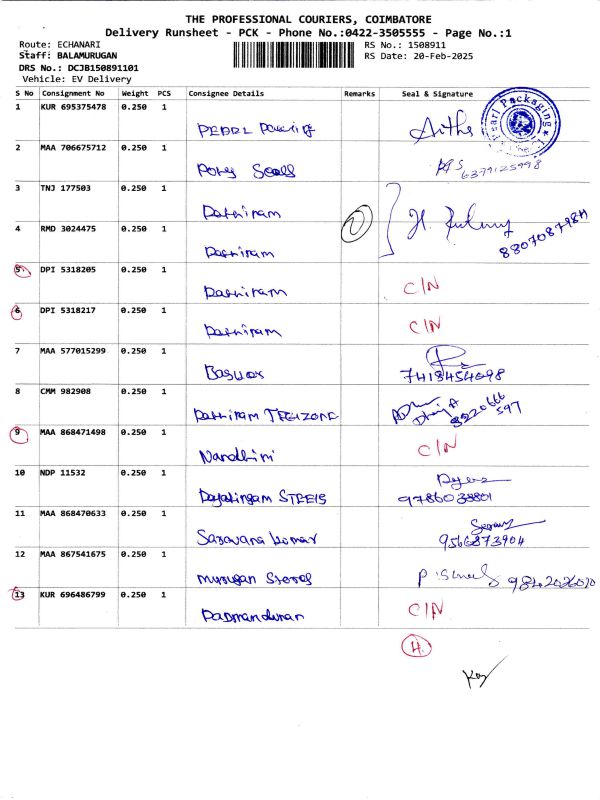 THE PROFESSIONAL COURIERS, COIMBATORE
Delivery Runsheet - PCK - Phone No.:0422-3505555 - Page No.:1
Route: ECHANARI RS No.: 1508911
Staff: BALAMURUGAN RS Date: 20-Feb-2025
DRS No.: DCJB150891101
Vehicle: EV Delivery
S No Consignment No Weight PCS Consignee Details Remarks Seal & Signature
1 KUR 695375478 0.250 1
PEARL Packing
Pearl Packaging
2 MAA 706675712 0.250 1
Pory Seals 6379125998
3 TNJ 177503 0.250 1
Pathiram
4 RMD 3024475 0.250 1
Pathiram
5 DPI 5318205 0.250 1
Pathiram C/N
6 DPI 5318217 0.250 1
Pathiram C/N
7 MAA 577015299 0.250 1
7418454098
8 CMM 982908 0.250 1
Pathiram TECHZONE 8220666597
9 MAA 868471498 0.250 1
Nandhini C/N
10 NDP 11532 0.250 1
9786038801
11 MAA 868470633 0.250 1
Saravana kumar 9566873904
12 MAA 867541675 0.250 1
Murugan Stores
13 KUR 696486799 0.250 1
C/N